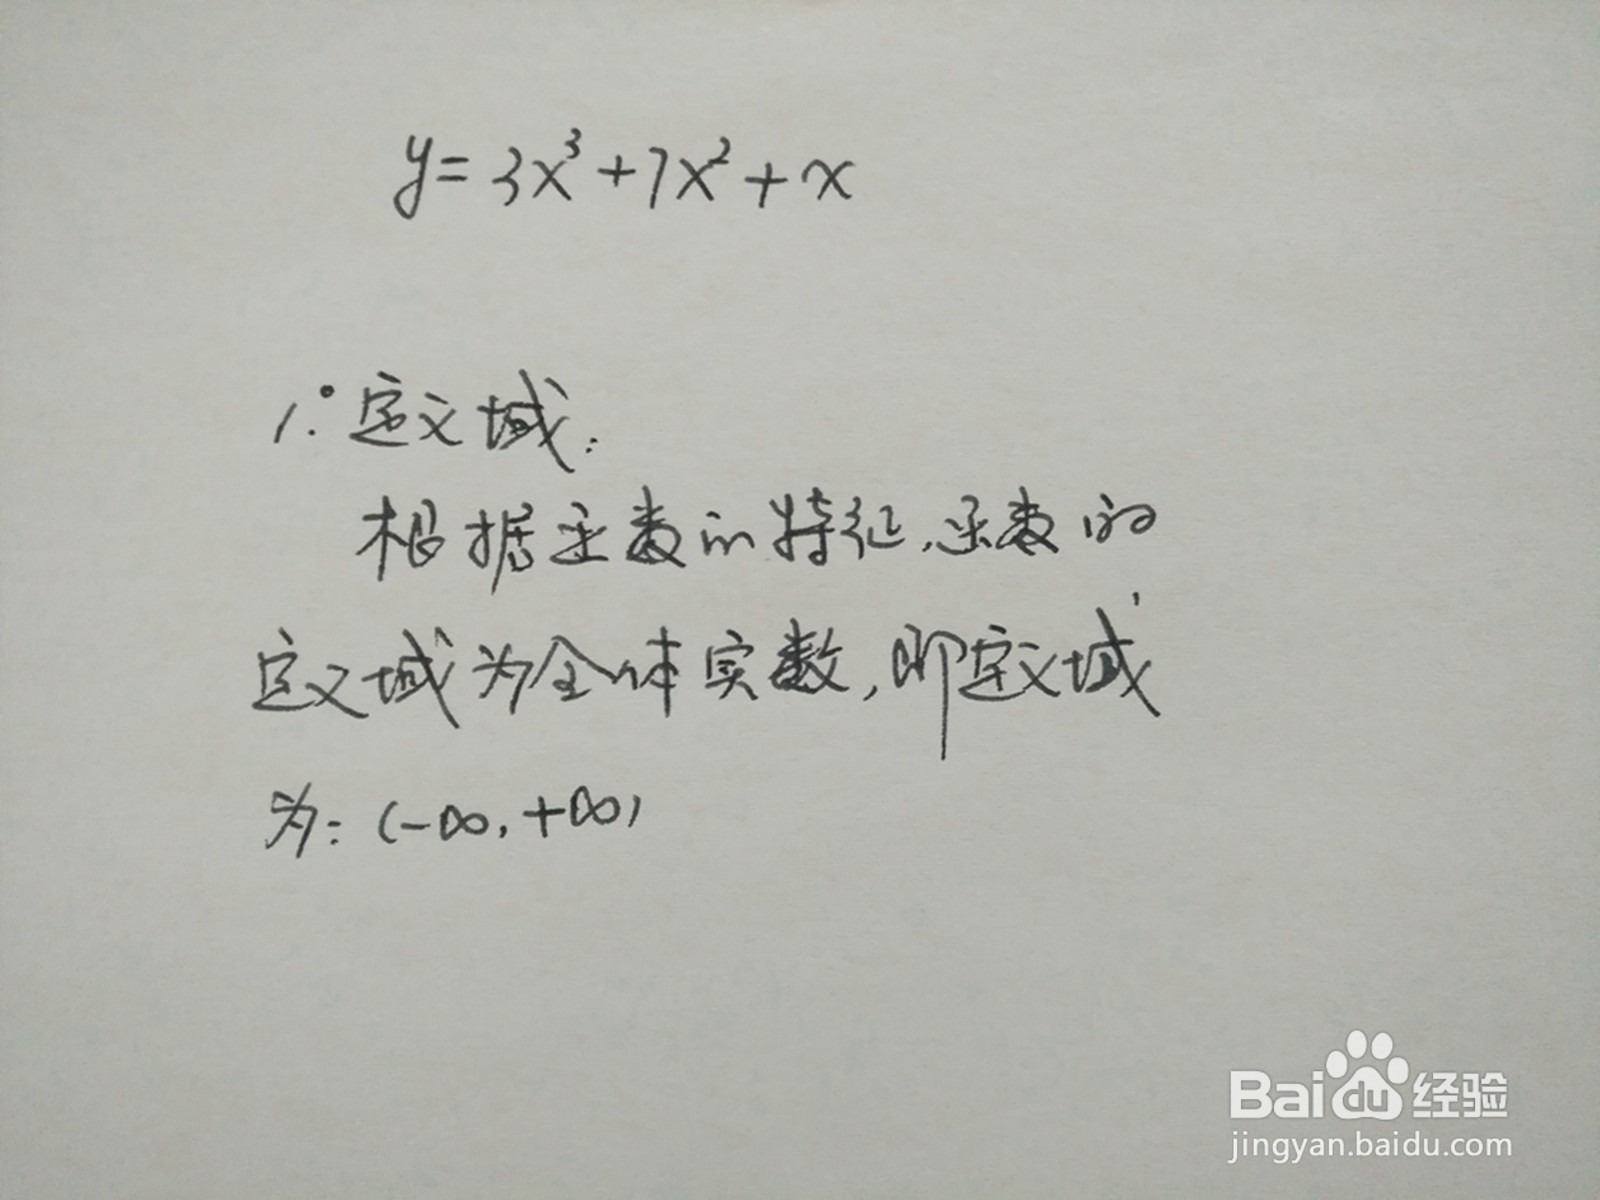 y=3x³+7x²+x
1.° 定义域:
根据函数的特征,函数的
定义域为全体实数,即定义域
为:(-∞,+∞)
Baidu 经验
jingyan.baidu.com